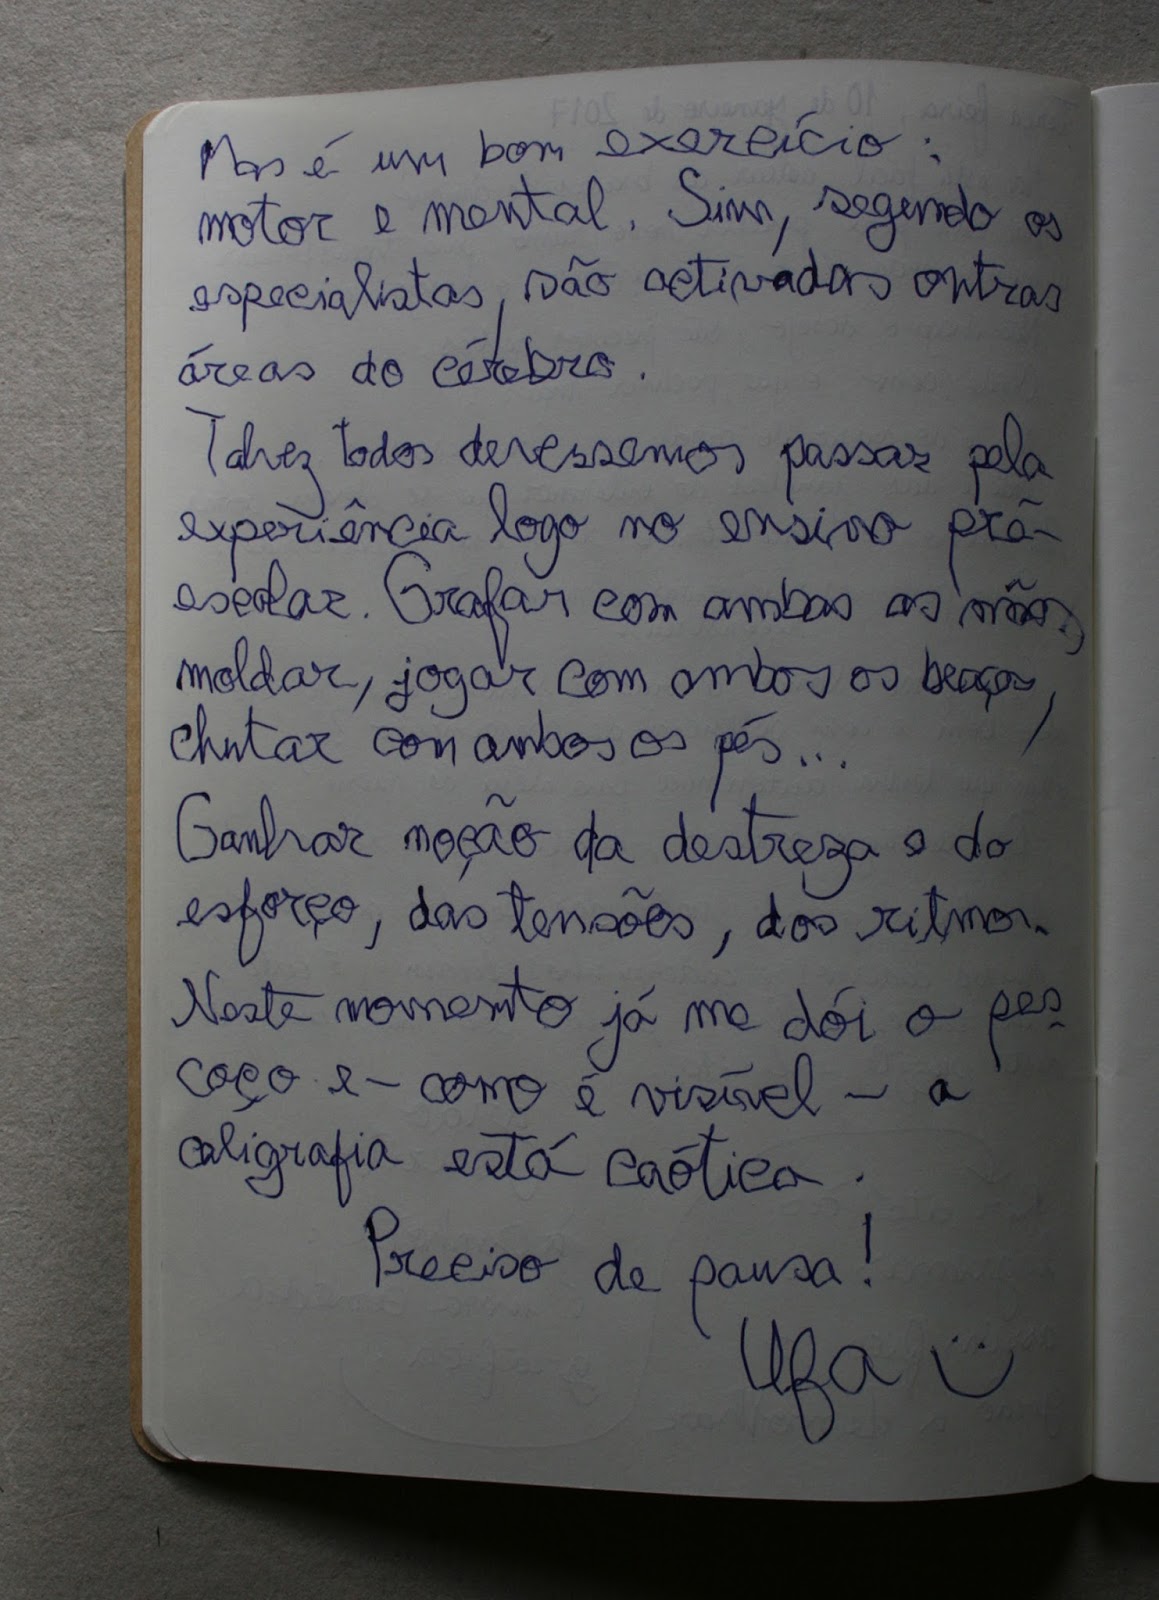 Mas é um bom exercício:
motor e mental. Sim, segundo os
especialistas, são activadas outras
áreas do cérebro.
Talvez todos devessemos passar pela
experiência logo no ensino pré-
escolar. Grafar com ambas as mãos,
moldar, jogar com ambos os braços,
chutar com ambos os pés...
Ganhar noção da destreza e do
esforço, das tensões, dos ritmos.
Neste momento já me dói o pes-
coço e – como é visível – a
caligrafia está caótica.
Preciso de pausa!
Ufa :)